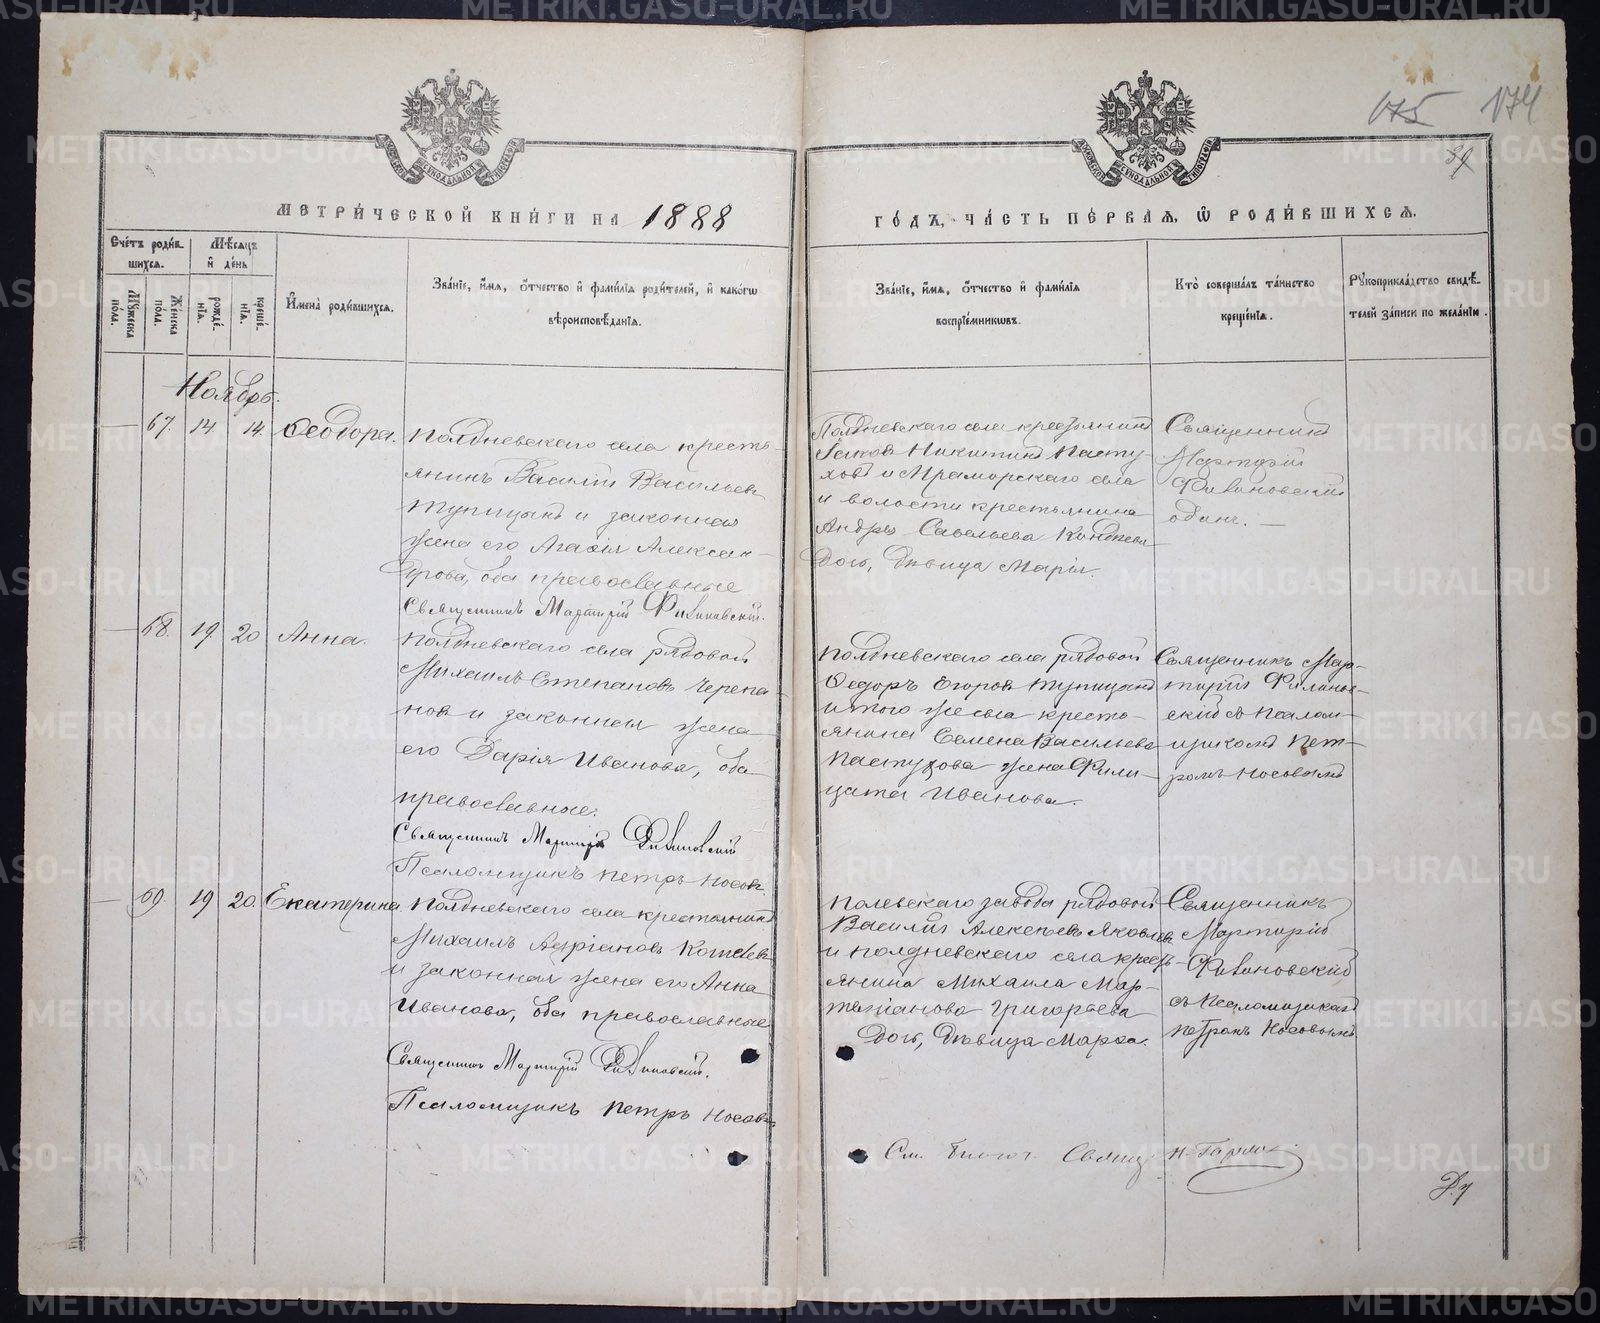 175 174
89
МЕТРИ́ЧЕСКОЙ КНИ́ГИ НА 1888
ГО́ДЪ, ЧА́СТЬ ПЕ́РВАЯ, Ѽ РОДИ́ВШИХСЯ.
Сче́тъ роди́в-
шихся.
Мѣ́сяцъ
и҆ де́нь
Мꙋжеска по́ла.
Же́нска по́ла.
рожде́-
нїѧ.
креще́-
нїѧ.
И҆мена̀ роди́вшихся.
Зва́нїе, и҆́мя, ѻ҆́тчество и҆ фами́лїя роди́телей, и҆ како́гѡ
вѣроисповѣ́данїя.
Зва́нїе, и҆́мя, ѻ҆́тчество и҆ фами́лїя
воспрїе́мникѡвъ.
Кто̀ соверша́лъ та́инство
креще́нїя.
Рꙋкоприкла́дство свидѣ́-
телей за́писи по жела́нїю.
Ноябрь.
— 67. 14 14. Ѳеодора.
Полдневскаго села кресть-
янинъ Василій Васильевъ
Тупицынъ и законная
жена его Агафія Алексан-
дрова, оба православные
Священникъ Мартирій Фивиновскій.
Полдневскаго села крестьянинъ
Іаковъ Никитинъ Пасту-
ховъ и Мраморскаго села
и волости крестьянина
Андрея Савельева
дочь, дѣвица Марія.
Священникъ
Мартирій
Фивиновскій
одинъ. —
— 68. 19. 20 Анна.
Полдневскаго села рядовой
Михаилъ Степановъ Черепа-
новъ и законная жена
его Дарія Иванова, оба
православные.
Священникъ Мартирій Фивиновскій
Псаломщикъ Петръ Носовъ.
Полдневскаго села рядовой
Ѳедоръ Егоровъ Тупицынъ
и того же села кресть-
янина Семена Васильева
Пастухова жена Фили-
цата Иванова.
Священникъ Мар-
тирій Фивинов-
скій съ псалом-
щикомъ Пет-
ромъ Носовымъ
— 69. 19 20. Екатерина.
Полдневскаго села крестьянинъ
Михаилъ Адріановъ Котевъ
и законная жена его Анна
Иванова, оба православные
Священникъ Мартирій Фивиновскій.
Псаломщикъ Петръ Носовъ
Полевскаго завода рядовой
Василій Алексѣевъ Яковлевъ
и Полдневскаго села кресть-
янина Михаила Мар-
темьянова Григорьева
дочь, дѣвица Марѳа.
Священникъ
Мартирій
Фивиновскій
съ псаломщикомъ
Петромъ Носовымъ.
См. Священ. Н.
METRIKI.GASO-URAL.RU